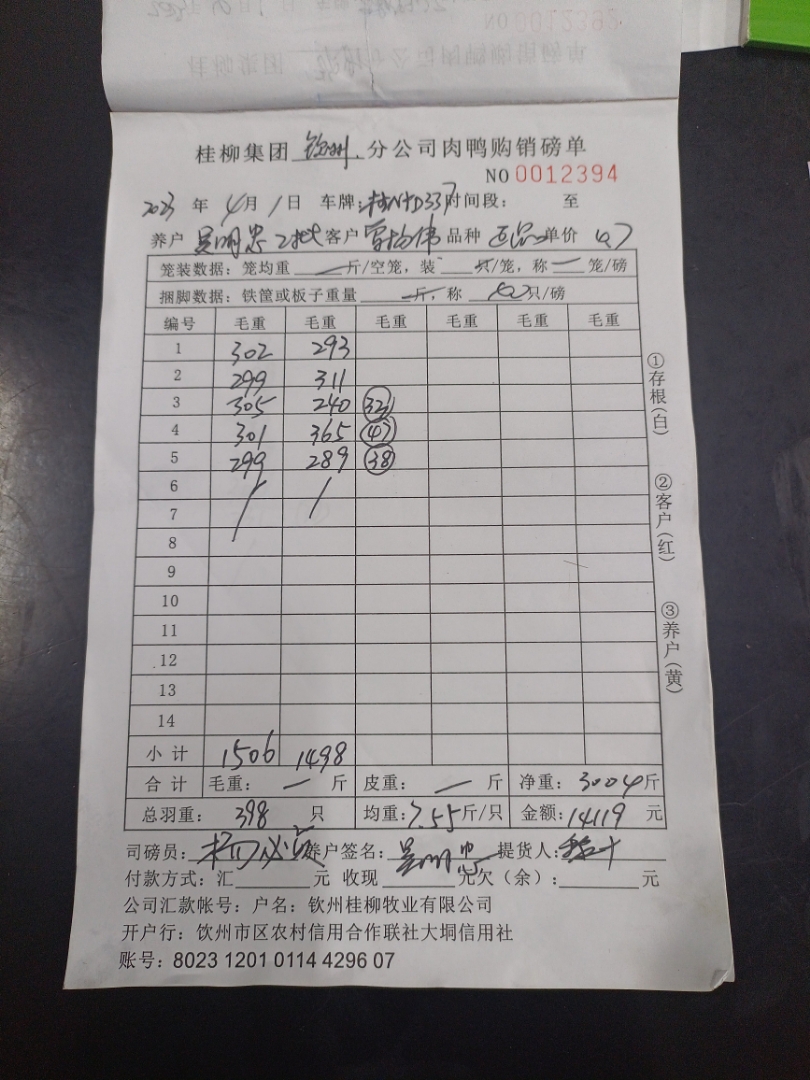 NO 0012392
桂柳集团 钦州 分公司肉鸭购销磅单
NO 0012394
2023 年 4月 1日 车牌: 时间段: 至
养户 吴明忠 客户 品种 单价 4.7
笼装数据: 笼均重 — 斤/空笼, 装 — 只/笼, 称 — 笼/磅
捆脚数据: 铁筐或板子重量 — 斤, 称 40 只/磅
编号 毛重 毛重 毛重 毛重 毛重 毛重
1 302 293
2 299 311
3 305 240 32
4 301 365 47
5 299 289 38
6
7
8
9
10
11
12
13
14
小计 1506 1498
合计 毛重: — 斤 皮重: — 斤 净重: 3004斤
总羽重: 398 只 均重: 7.55斤/只 金额: 14119 元
司磅员: 养户签名: 吴明忠 提货人:
付款方式: 汇 元 收现 元欠(余): 元
公司汇款帐号: 户名: 钦州桂柳牧业有限公司
开户行: 钦州市区农村信用合作联社大垌信用社
账号: 8023 1201 0114 4296 07
①存根(白)
②客户(红)
③养户(黄)